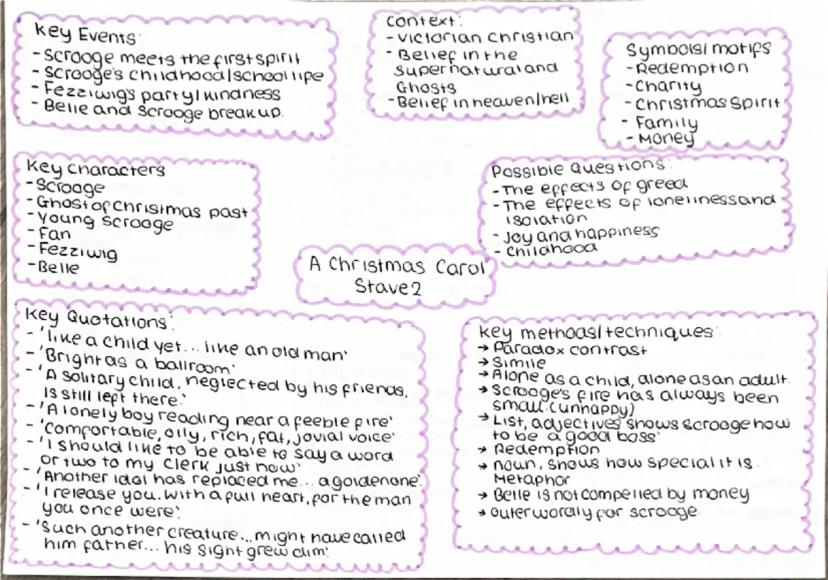 Key Events:
- Scrooge meets the first spirit
- Scrooge's childhood/school life
- Fezziwig's party/kindness
- Belle and Scrooge break up.
Context:
- Victorian Christian
- Belief in the
supernatural and
Ghosts
- Belief in heaven/hell
Symbols/motifs
- Redemption
- Charity
- Christmas Spirit
- Family
- Money
Key Characters
- Scrooge
- Ghost of Christmas past
- Young Scrooge
- Fan
- Fezziwig
- Belle
Possible Questions:
- The effects of greed
- The effects of loneliness and
isolation
- Joy and happiness
- Childhood
A Christmas Carol
Stave 2
Key Quotations:
- 'like a child yet... like an old man'
- 'Bright as a ballroom'
- 'A solitary child, neglected by his friends,
is still left there.'
- 'A lonely boy reading near a feeble fire'
- 'Comfortable, oily, rich, fat, jovial voice'
- 'I should like to be able to say a word
or two to my clerk just now'
- 'Another idol has replaced me... a golden one'
- 'I release you. With a full heart, for the man
you once were'.
- 'Such another creature... might have called
him father... his sight grew dim'.
Key methods/techniques:
→ Paradox contrast
→ Simile
→ Alone as a child, alone as an adult.
→ Scrooge's fire has always been
small. (unhappy)
→ List, adjectives shows Scrooge how
to be a good boss
→ Redemption
→ noun, shows how special it is.
Metaphor
→ Belle is not compelled by money
→ outerworally for scrooge